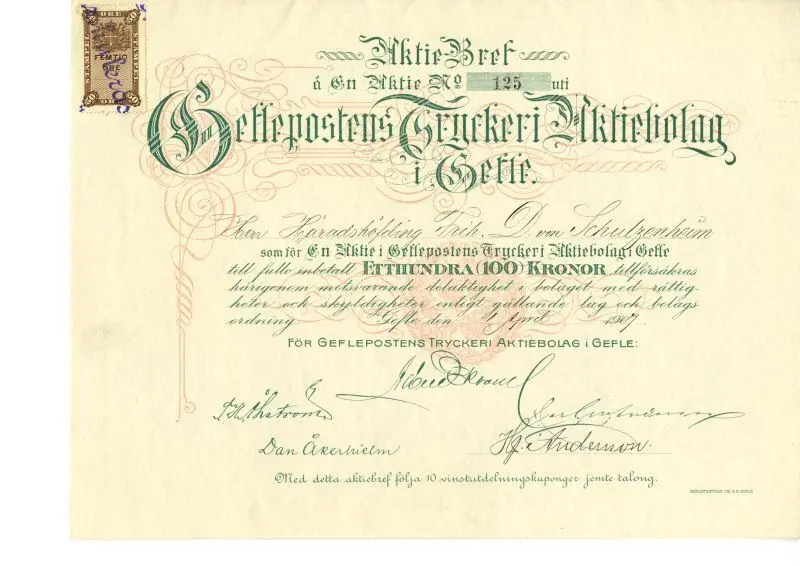 50 ÖRE 50
STÄMPEL
FEMTIO
ÖRE
STÄMPEL
50 ÖRE 50
Aktie-Bref
å En Aktie No 125 uti
Geflepostens Tryckeri Aktiebolag
i Gefle.
Herr Häradshöfding Frih. D. von Schulzenheim
som för En Aktie i Geflepostens Tryckeri Aktiebolag i Gefle
till fullo inbetalt ETTHUNDRA (100) KRONOR tillförsäkras
härigenom motsvarande delaktighet i bolaget med rättig-
heter och skyldigheter enligt gällande lag och bolags-
ordning. Gefle den April 1907
FÖR GEFLEPOSTENS TRYCKERI AKTIEBOLAG I GEFLE:
Öhström
Dan Åkerhielm Hj. Anderson.
Med detta aktiebref följa 10 vinstutdelningskuponger jemte talong.
GEFLEPOSTENS TR. A.B. GEFLE